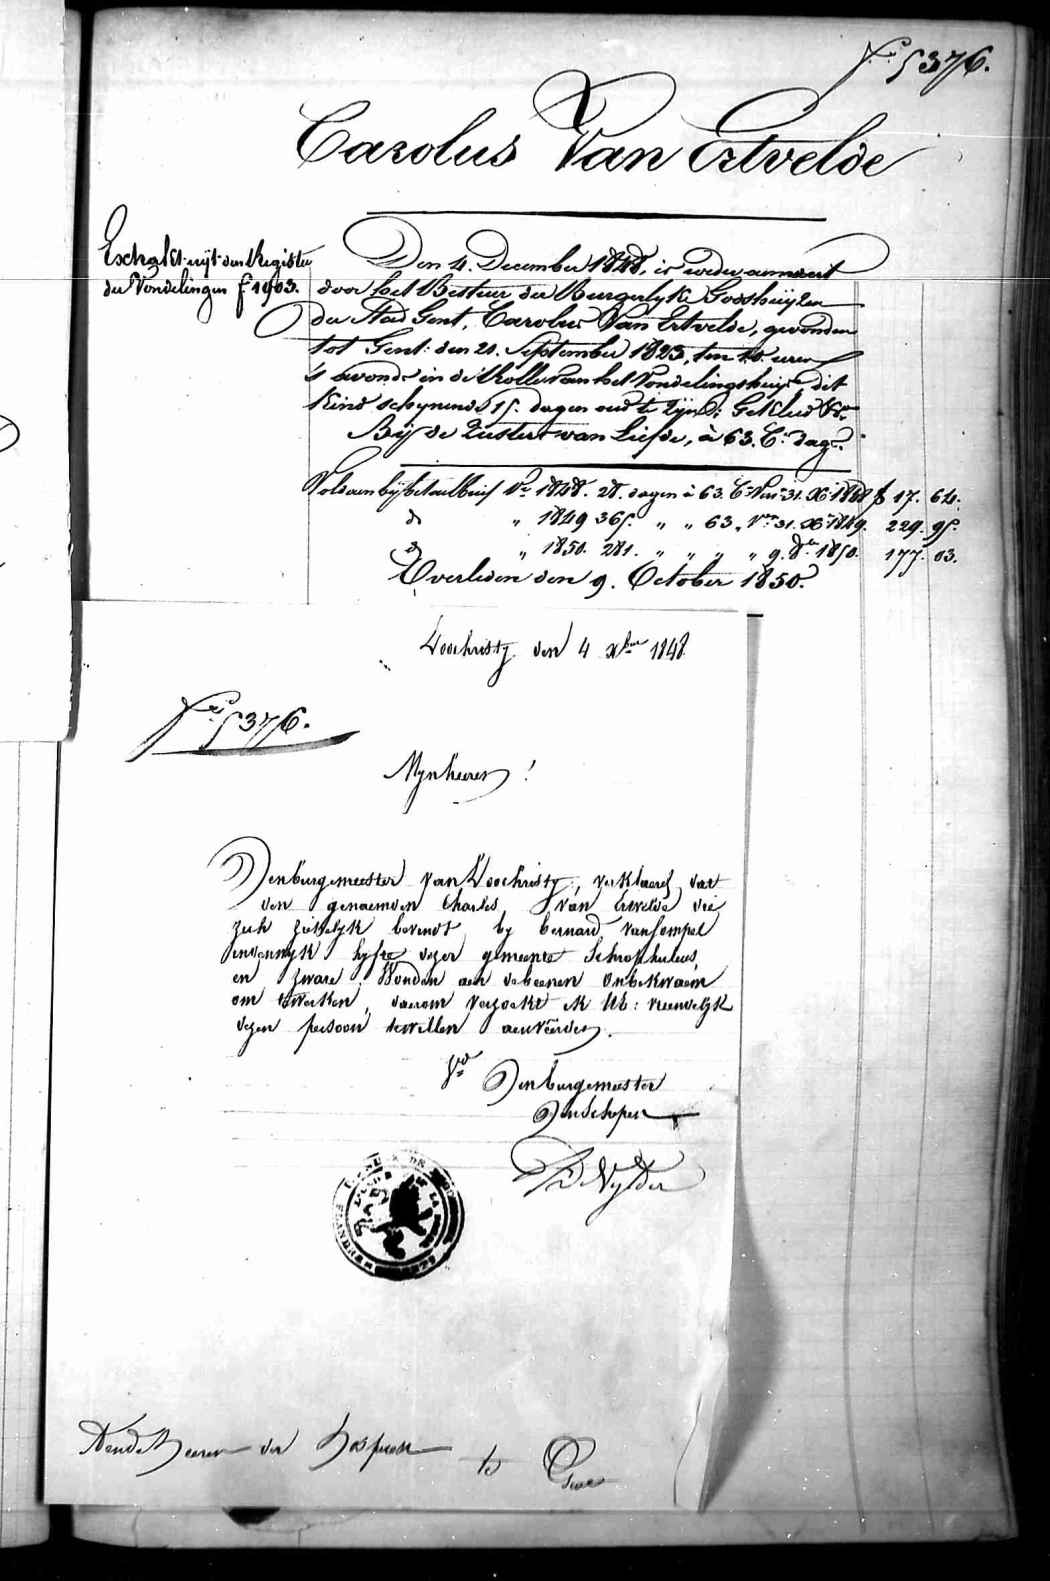 f.º 5376.
Carolus Van Ertvelde
Extrakt uyt den Register
der Vondelingen fº 1963.
Den 4. December 1848. is wederaenveert
door het Bestuur der Burgerlyke Godshuyzen
der Stad Gent, Carolus Van Ertvelde, gevonden
tot Gent den 21. September 1823, ten 10. uren
's avonds in de Rolle van het Vondelingshuys, dit
Kind schynende 15. dagen oud te zyn; Gekleed &ª
Bij de Zusters van Liefde, à 63. Cs. dags.
Voldaen by betaelbrief Nr 1848. 28. dagen à 63. Cs 31. Xb 1848 f 17. 64.
dº " 1849 365. " " 63. 31. Xb 1849. 229. 95.
dº " 1850. 281. " " " " 9. 8br 1850. 177. 03.
Overleden den 9. October 1850.
Loochristy den 4 xber 1848
f.º 5376.
Mynheeren !
Den burgemeester van Loochristy, verklaert dat
den genaemden Charles Van Ertvelde die
zich ziekelyk bevindt by bernard Van
dezer gemeente
en zware Wonden aen de beenen onbekwaem
om te werken, daerom verzoeke ik UE: vriendelyk
dezen persoon te willen aenveerden.
Den burgemeester
Den Schepen
D. De Nylder
Aen de Heeren der Hospicen
te Gent